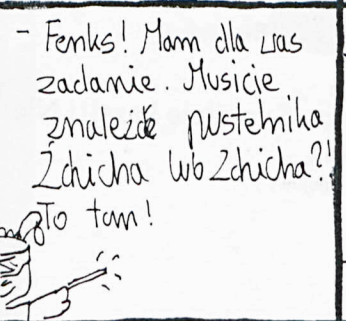 - Fenks! Mam dla was
zadanie. Musicie
znaleźdź pustelnika
Żdhicha lub Zdhicha?!
To tam!